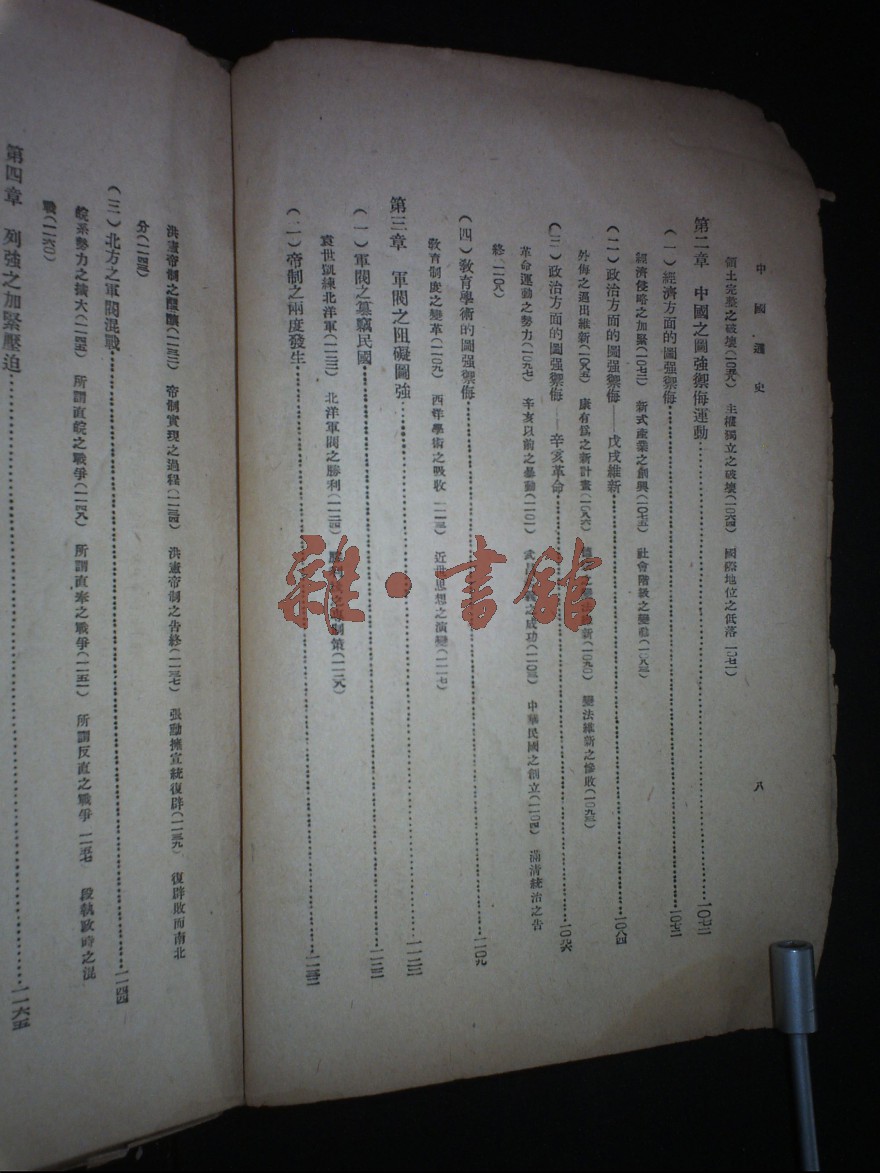 中國通史
八
領土完整之破壞(一〇五九) 主權獨立之破壞(一〇六四) 國際地位之低落 一〇七一)
第二章 中國之圖強禦侮運動……一〇七二
(一)經濟方面的圖强禦侮……一〇七二
經濟侵略之加緊(一〇七二) 新式產業之創興(一〇七五) 社會階級之變動(一〇八三)
(二)政治方面的圖强禦侮——戊戌維新……一〇八四
外侮之逼出維新(一〇八五) 康有爲之新計畫(一〇八六) 新(一〇九〇) 變法維新之慘敗(一〇九三)
(三)政治方面的圖强禦侮——辛亥革命……一〇九六
革命運動之勢力(一〇九七) 辛亥以前之暴動(一一〇一) 武昌之成功(一一〇三) 中華民國之創立(一一〇四) 滿清統治之告
終(一一〇八)
(四)敎育學術的圖强禦侮……一一〇九
敎育制度之變革(一一〇九) 西洋學術之吸收(一一一三) 近世思想之演變(一一一七)
第三章 軍閥之阻礙圖強……一一二二
(一)軍閥之篡竊民國……一一二二
袁世凱練北洋軍(一一二二) 北洋軍閥之勝利(一一二四) 策(一一二八)
(二)帝制之兩度發生……一一三二
洪憲帝制之醞釀(一一三二) 帝制實現之過程(一一三四) 洪憲帝制之告終(一一三七) 張勳擁宣統復辟(一一三九) 復辟敗而南北
分(一一四三)
(三)北方之軍閥混戰……一一四四
皖系勢力之擴大(一一四五) 所謂直皖之戰爭(一一四八) 所謂直奉之戰爭(一一五一) 所謂反直之戰爭 一一五七 段執政時之混
戰(一一六〇)
第四章 列強之加緊壓迫……一一六五
雜·書館